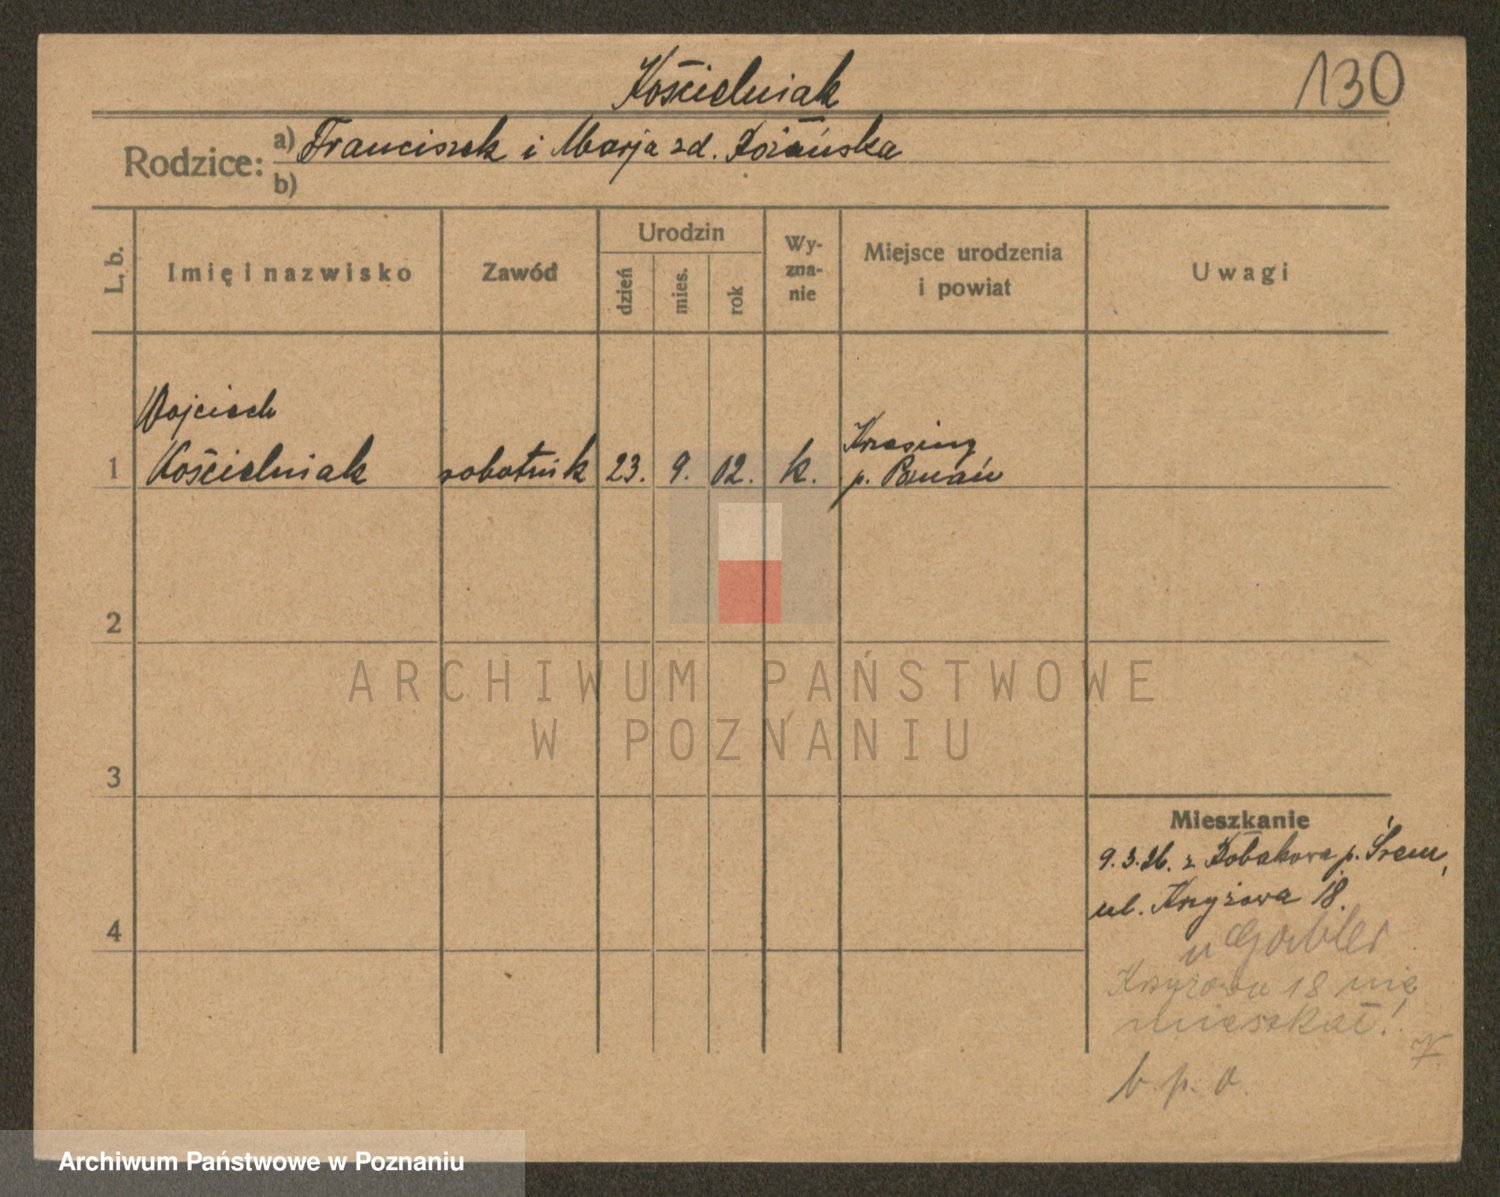 Kościelniak
130
Rodzice: a) Franciszek i Marja zd.
b)
L. b.
Imię i nazwisko
Zawód
Urodzin
dzień
mies.
rok
Wy-
zna-
nie
Miejsce urodzenia
i powiat
Uwagi
Wojciech
1 Kościelniak robotnik 23. 9. 02. k.
Krzesiny
p. Poznań
2
3
4
ARCHIWUM PAŃSTWOWE
W POZNANIU
Mieszkanie
9. 3. 26. z p. Śrem,
ul. Krzyżowa 18.
u Gabler
Krzyżowa 18 nie
mieszkał!
b. p. o.
Archiwum Państwowe w Poznaniu